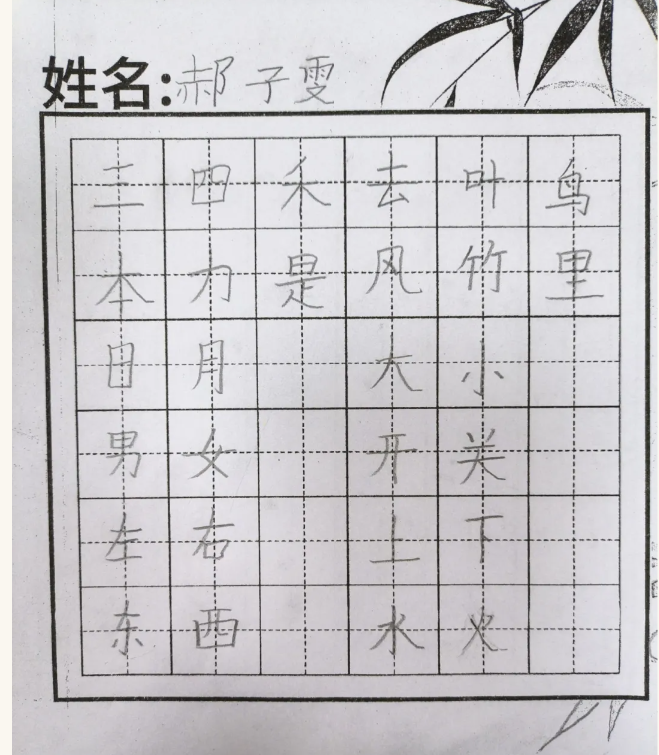 姓名:郝子雯
三 四 禾 去 叶 鸟
本 力 是 风 竹 里
日 月 大 小
男 女 开 关
左 右 上 下
东 西 水 火